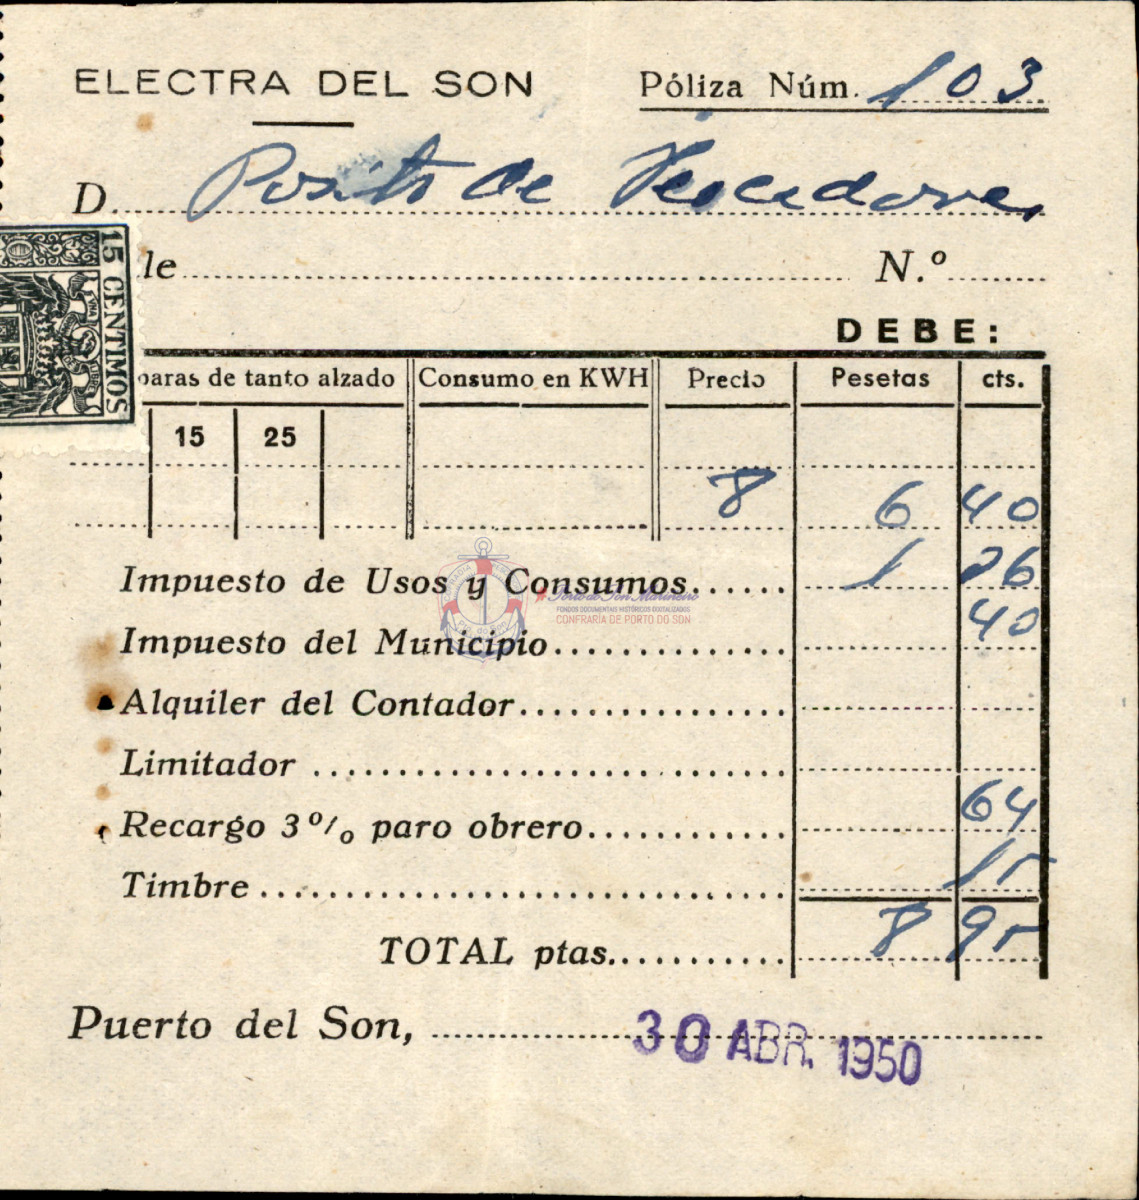 ELECTRA DEL SON Póliza Núm. 103
D. Posito de Pescadores
15 CENTIMOS
le N.º
DEBE:
paras de tanto alzado Consumo en KWH Precio Pesetas cts.
15 25
8 6 40
Impuesto de Usos y Consumos 1 26
Porto do Son Marineiro
FONDOS DOCUMENTAIS HISTÓRICOS DIXITALIZADOS
CONFRARÍA DE PORTO DO SON
Pto. do Son
Impuesto del Municipio 40
Alquiler del Contador
Limitador
Recargo 3 % paro obrero 64
Timbre 15
TOTAL ptas. 8 95
Puerto del Son, 30 ABR. 1950